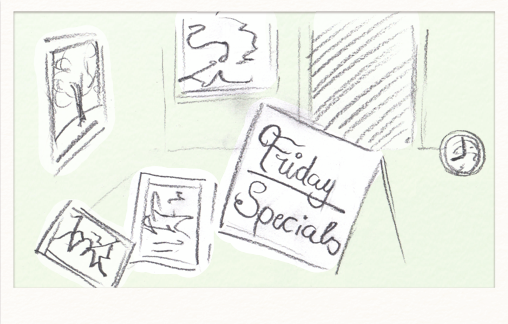 Friday
Specials